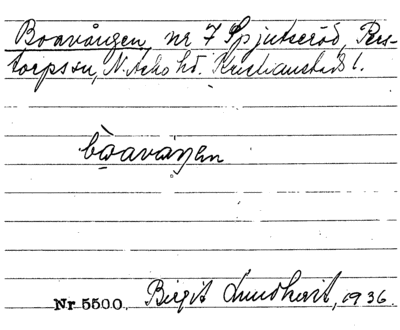 Boavången, nr 7 Spjutseröd, Ris-
torps sn, N. Åsbo hd. Kristianstads l.
bo̤avåŋen
Nr 5500. Birgit Lundkvist, 1936.